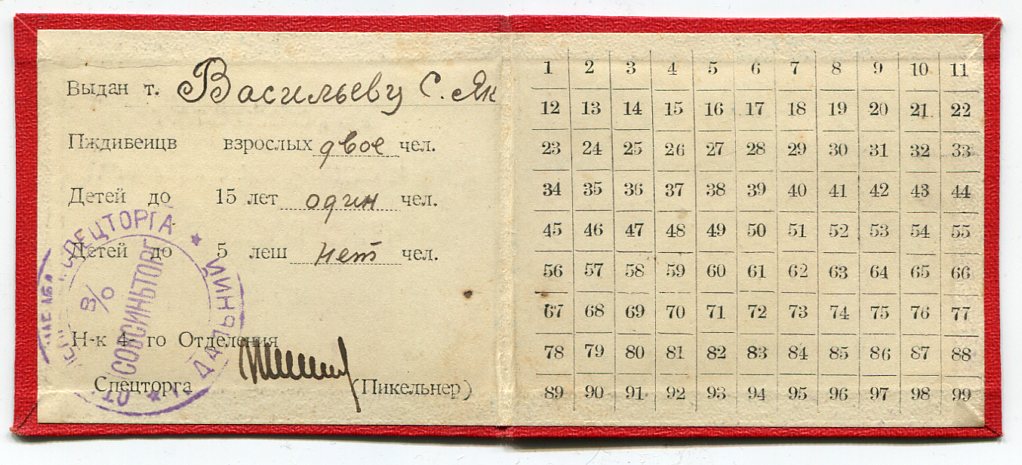 Выдан т. Васильеву С. Як
Пждибеицв взрослых двое чел.
Детей до 15 лет один чел.
Детей до 5 леш нет чел.
СПЕЦТОРГА * ДАЛЬНИЙ *
В/О
СОВСИНЬТОРГ
Н-к 4-го Отделения
Спецторга (Пикельнер)
1 2 3 4 5 6 7 8 9 10 11
12 13 14 15 16 17 18 19 20 21 22
23 24 25 26 27 28 29 30 31 32 33
34 35 36 37 38 39 40 41 42 43 44
45 46 47 48 49 50 51 52 53 54 55
56 57 58 59 60 61 62 63 64 65 66
67 68 69 70 71 72 73 74 75 76 77
78 79 80 81 82 83 84 85 86 87 88
89 90 91 92 93 94 95 96 97 98 99